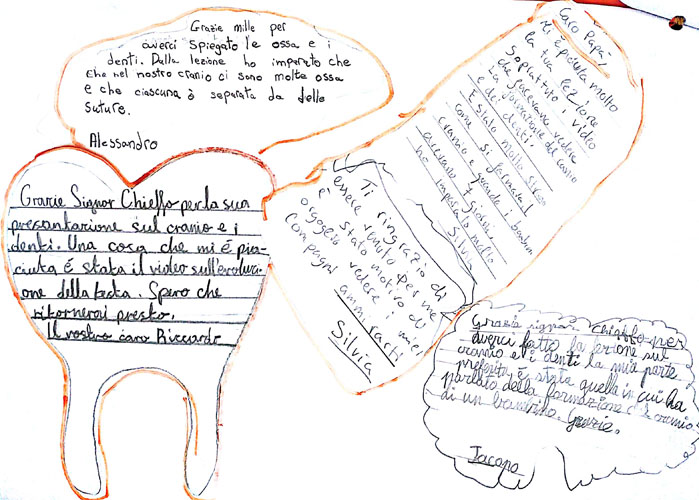 Grazie mille per
averci spiegato le ossa e i
denti. Dalla lezione ho imparato che
che nel nostro cranio ci sono molte ossa
e che ciascuna è separata da delle
suture.
Alessandro
Grazie Signor Chieffo per la sua
presentazione sul cranio e i
denti. Una cosa che mi é pia-
ciuta é stata il video sull'evoluzi-
one della testa. Spero che
ritornerai presto.
Il vostro caro Riccardo
Caro Papà,
Mi è piaciuta molto
la tua lezione
Soprattutto i video
che facevano vedere
la formazione del cranio
e dei denti.
È stato molto
come si formava il
cranio e quando i bambini
ho imparato molto
Silvia
Ti ringrazio di
essere venuto per me
è stato motivo di
orgoglio vedere i miei
compagni ammirarti
Silvia
Grazie signor Chieffo per
averci fatto la lezione sul
cranio e i denti la mia parte
preferita é stata quella in cui ha
parlato della formazione del cranio
di un bambino. Grazie.
Jacopo